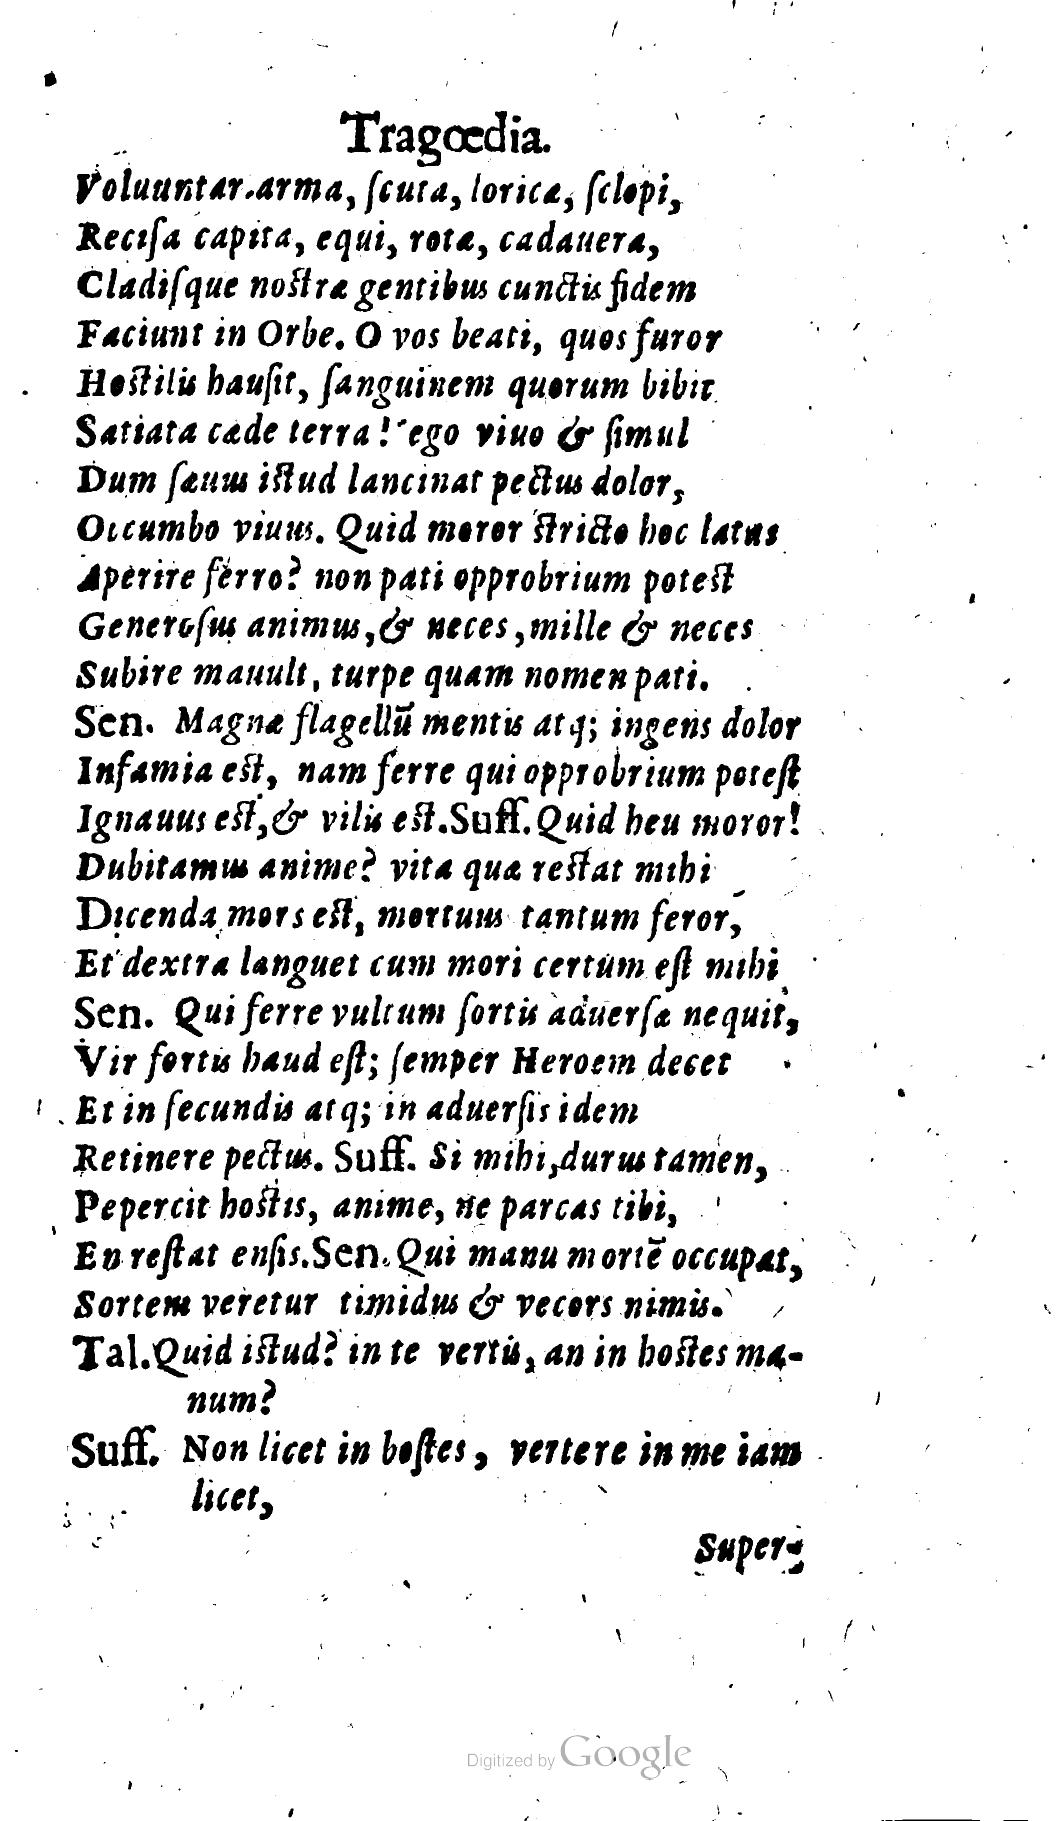 Tragœdia.
Voluuntur arma, ſcuta, loricæ, ſclopi,
Reciſa capita, equi, rotæ, cadauera,
Cladiſque noſtræ gentibus cunctis fidem
Faciunt in Orbe. O vos beati, quos furor
Hoſtilis hauſit, ſanguinem quorum bibit
Satiata cæde terra! ego viuo & ſimul
Dum ſæuus iſtud lancinat pectus dolor,
Occumbo viuus. Quid moror ſtricto hoc latus
Aperire ferro? non pati opprobrium poteſt
Generoſus animus, & neces, mille & neces
Subire mauult, turpe quam nomen pati.
Sen. Magnæ flagellū mentis atq; ingens dolor
Infamia eſt, nam ferre qui opprobrium poteſt
Ignauus eſt, & vilis eſt. Suff. Quid heu moror!
Dubitamus anime? vita quæ reſtat mihi
Dicenda mors eſt, mortuus tantum feror,
Et dextra languet cum mori certum eſt mihi
Sen. Qui ferre vultum ſortis aduerſæ nequit,
Vir fortis haud eſt; ſemper Heroem decet
Et in ſecundis atq; in aduerſis idem
Retinere pectus. Suff. Si mihi, durus tamen,
Pepercit hoſtis, anime, ne parcas tibi,
En reſtat enſis. Sen. Qui manu mortē occupat,
Sortem veretur timidus & vecors nimis.
Tal. Quid iſtud? in te vertis, an in hoſtes ma-
num?
Suff. Non licet in hoſtes, vertere in me iam
licet,
Super-
Digitized by Google